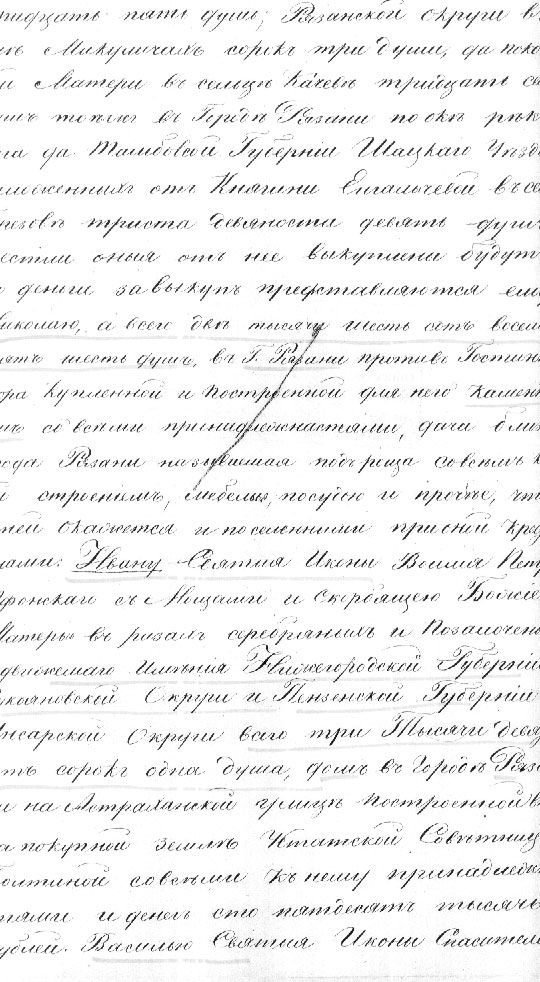 тридцать пять душъ; Рязанской округи въ
Микуличахъ сорокъ три души, да поко
и Матери въ сельцѣ Качевѣ тридцать се
тожъ въ Городѣ Рязани по окѣ рѣк
да Тамбовской Губерніи Шацкаго Уѣзд
отъ Княгини Енгалычевой въ се
триста девяности девять душъ
естли оныя отъ нее выкуплены будут
деньги за выкупъ представляются ему
Николаю, а всего двѣ тысячи шесть сотъ восем
десятъ шесть душъ, въ Г. Рязани противъ Гостин
купленной и построенной для него камен
со всѣми принадлежностями, дачи близ
города Рязани называемая подъ роща совсѣмъ
строеніемъ, мебелью, посудою и прочее, что
ней окажется и поселенными при оной крес
нами: Ивану Святыя Иконы Воимя Петр
Афонскаго съ Мощами и Скорбящею Божіе
Матеры въ ризахъ серебряныхъ и Позалочен
движемаго Имѣнія Нижегородской Губерніи
Лукояновской Округи и Пензенской Губерніи
Инсарской Округи всего три Тысячи девя
тъ сорокъ одна душа, домъ въ Городѣ Ряза
и на Астраханской улицѣ построенной
на покупной землѣ Штатской Совѣтниц
Болтиной совсѣми къ нему принадлеж
тями и денегъ сто пятдесятъ тысячь
рублей. Василью Святыя Иконы Спасител